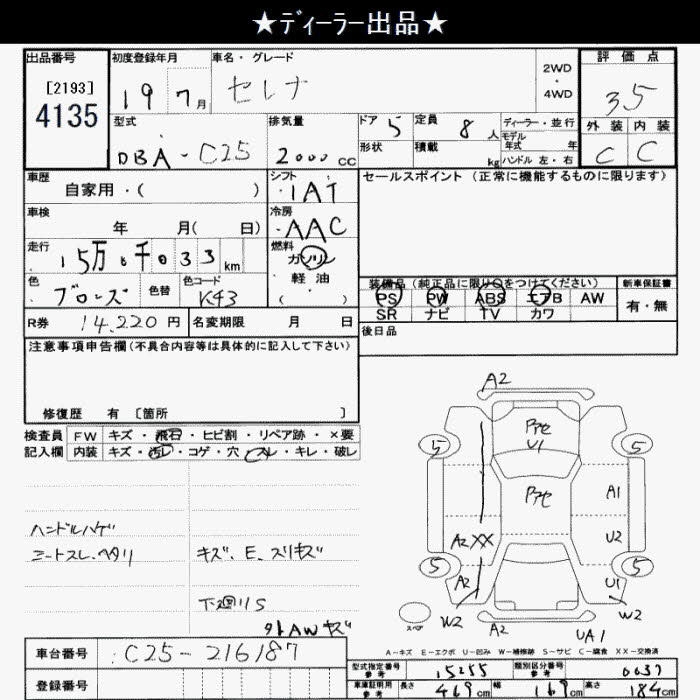 ★ディーラー出品★
出品番号
[2193]
4135
初度登録年月
19 7月
車名・グレード
セレナ
2WD
・
4WD
評価点
3.5
外装 内装
C C
型式
DBA-C25
排気量
2000cc
ドア 5
形状
定員 8人
積載 kg
ディーラー・並行
モデル年式 年
ハンドル 左・右
車歴
自家用・( )
シフト
IAT
セールスポイント(正常に機能するものに限ります)
車検
年 月( 日)
冷房
AAC
走行
15万 6千0 3 3 km
燃料
ガソリン
軽油
( )
色
ブロンズ
色替
色コード
K43
装備品(純正品に限り○をつけてください)
PS PW ABS エアB AW
SR ナビ TV カワ
新車保証書
有・無
R券 14,220円
名変期限 月 日
後日品
注意事項申告欄(不具合内容等は具体的に記入して下さい)
修復歴 有 [箇所 ]
検査員 FW キズ・飛石・ヒビ割・リペア跡・×要
記入欄 内装 キズ・汚レ・コゲ・穴・スレ・キレ・破レ
ハンドルハゲ
シートスレ・ヘタリ
キズ、E、スリキズ
下廻りS
外AWキズ
A2
5 5
U1
A1
A2XX
U2
5 5
A2
U1
W2
W2
A2
UA1
スペア
A-キズ E-エクボ U-凹み W-補修跡 S-サビ C-腐食 XX-交換済
車台番号 C25-216187
登録番号
型式指定番号
参考
15255
類別区分番号
参考
0037
車庫証明用
参考
長さ 469cm 幅 169cm 高さ 184cm